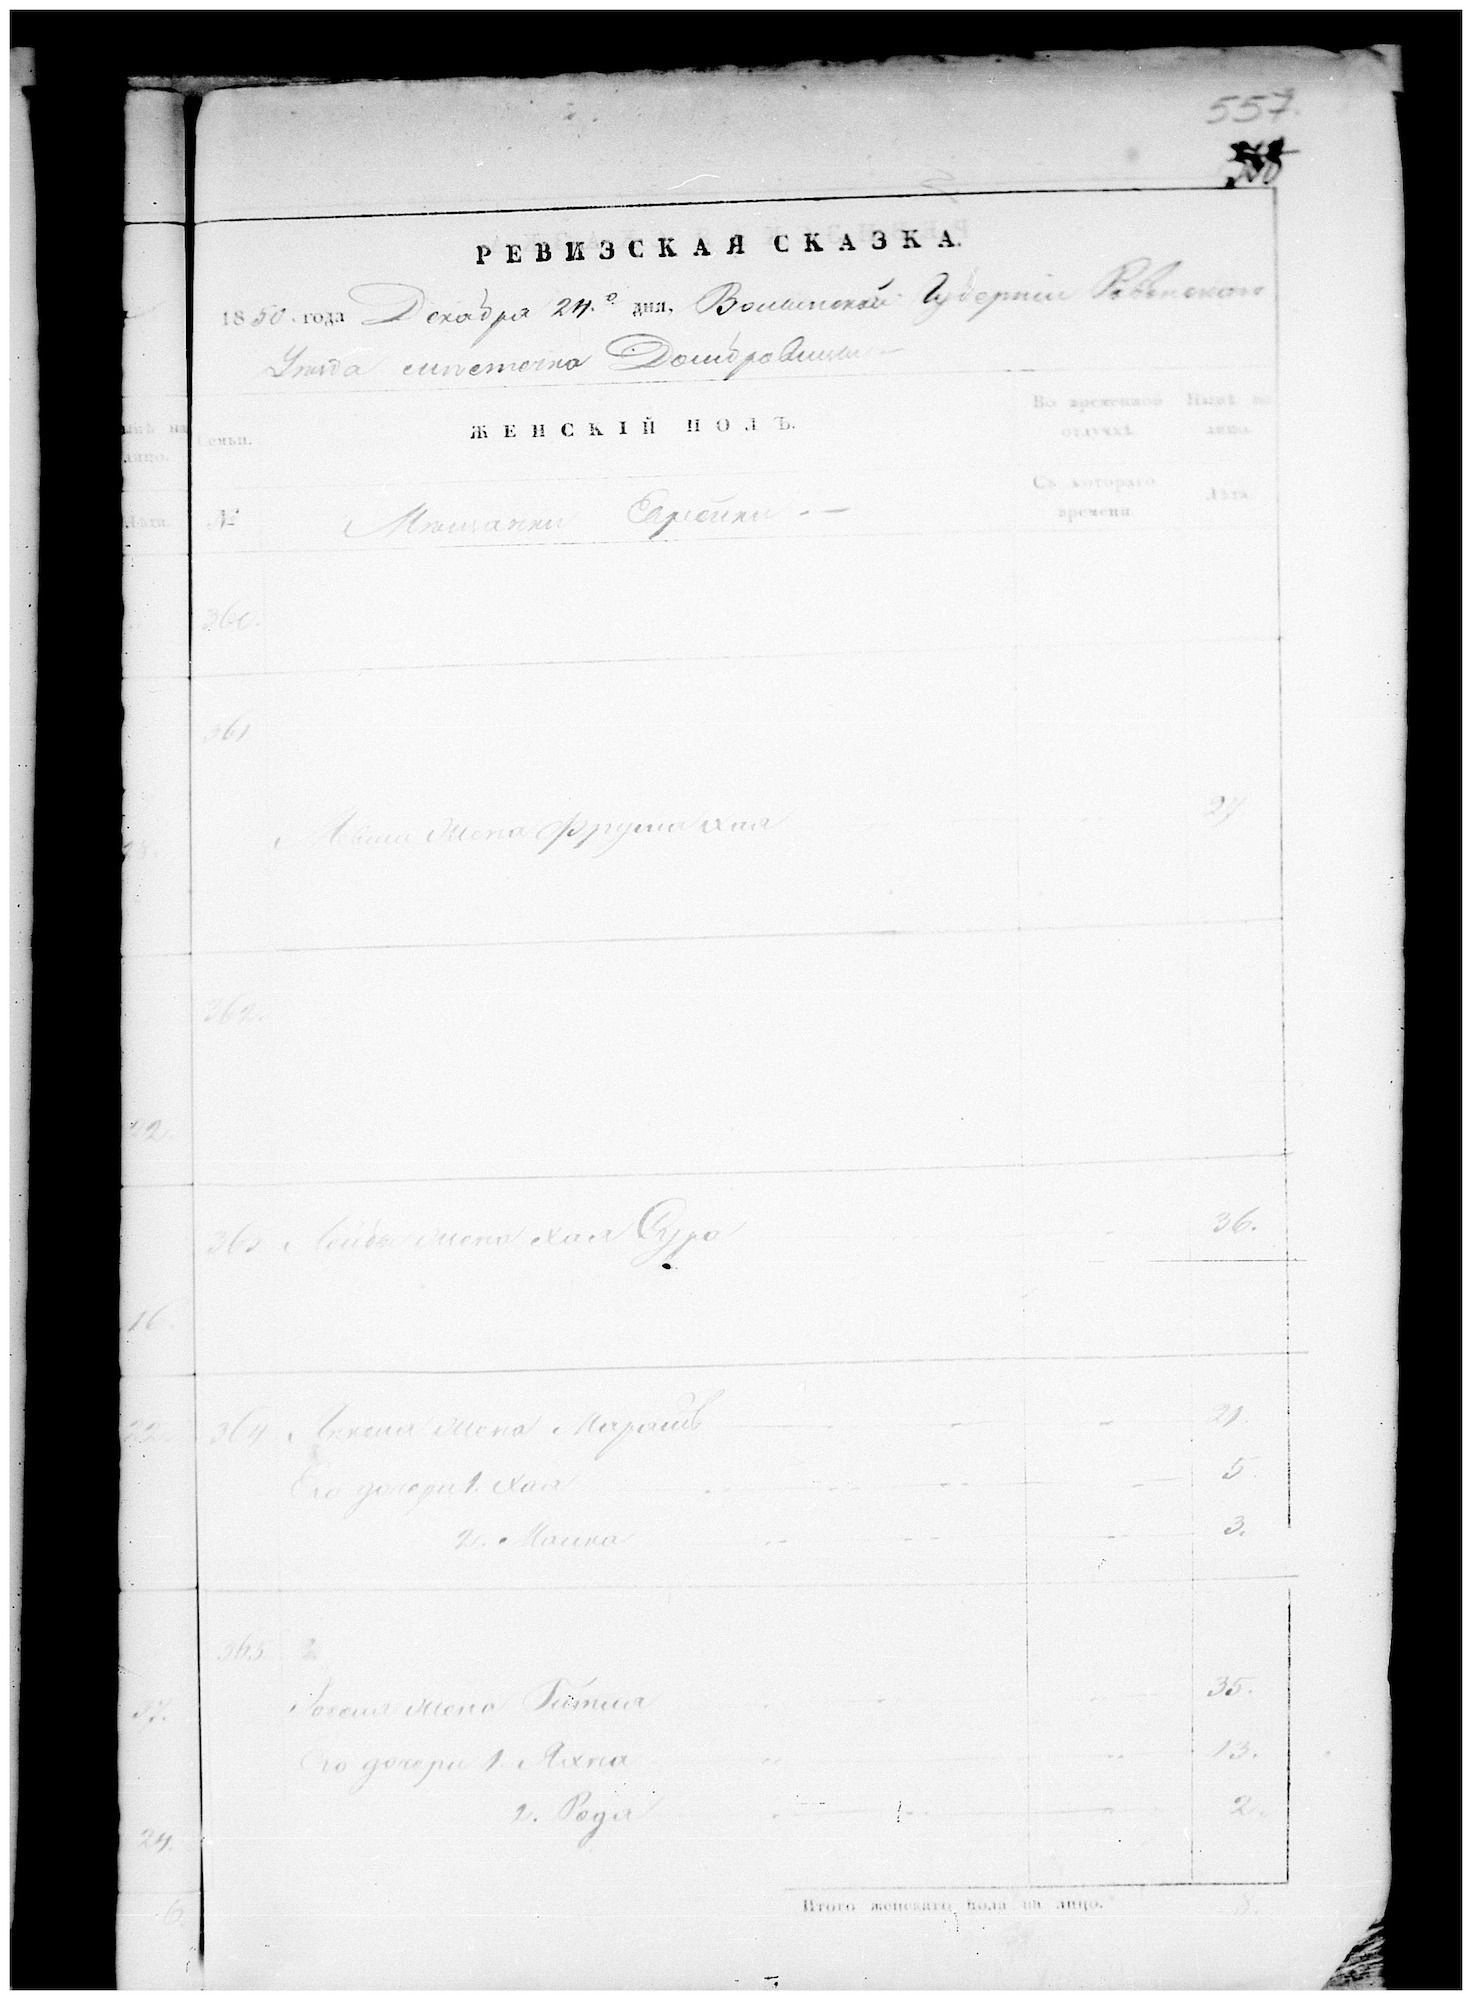 557.
РЕВИЗСКАЯ СКАЗКА.
1850 года Декабря 24.го дня, Волынской Губернии Ровенского
Уезда местечка Домбровицы
нѣ на
лицо.
Лѣта.
Семьи.
ЖЕНСКІЙ ПОЛЪ.
Въ временной
отлучкѣ.
Нынѣ на
лицо.
№
Мещанки Евреики
Съ котораго
времени.
Лѣта.
360.
361
жена Фрума Хая 27
362.
22.
363 Лейбы жена Хая Сура 36.
16.
22. 364 жена 21.
Его дочери 1. Хая 5
2. Малка 3.
365 2
37. жена Гитля 35.
Его дочери 1. Яхна 13.
2. Рода 2.
24.
6. Итого женскаго пола на лицо. 8.